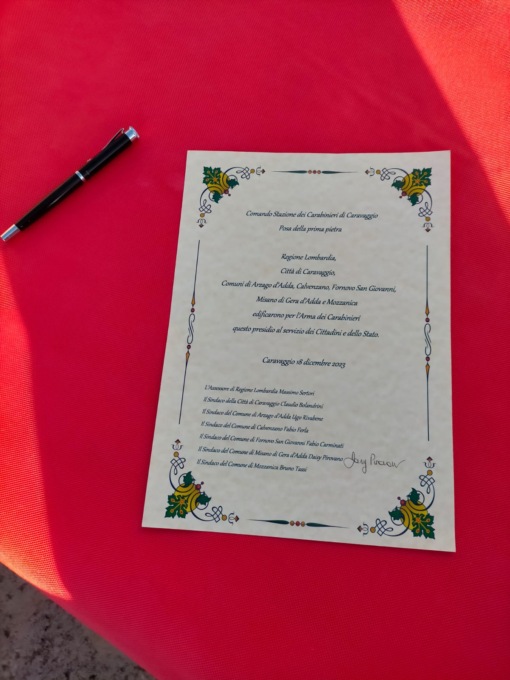 Comando Stazione dei Carabinieri di Caravaggio
Posa della prima pietra
Regione Lombardia,
Città di Caravaggio,
Comuni di Arzago d'Adda, Calvenzano, Fornovo San Giovanni,
Misano di Gera d'Adda e Mozzanica
edificarono per l'Arma dei Carabinieri
questo presidio al servizio dei Cittadini e dello Stato.
Caravaggio 18 dicembre 2023
L'Assessore di Regione Lombardia Massimo Sertori
Il Sindaco della Città di Caravaggio Claudio Bolandrini
Il Sindaco del Comune di Arzago d'Adda Ugo Rivabene
Il Sindaco del Comune di Calvenzano Fabio Ferla
Il Sindaco del Comune di Fornovo San Giovanni Fabio Carminati
Il Sindaco del Comune di Misano di Gera d'Adda Daisy Pirovano
Il Sindaco del Comune di Mozzanica Bruno Tassi